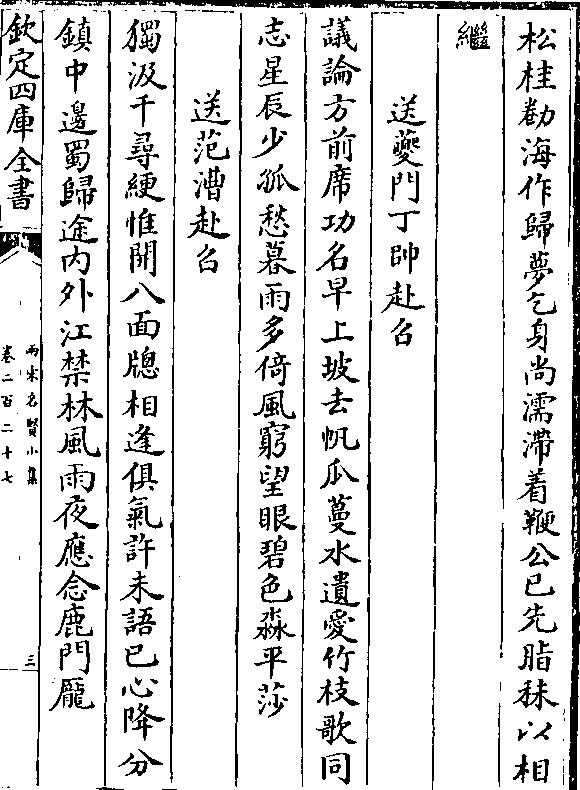 松桂勸海作歸夢乞身尚濡滯着鞭公已先脂秣以相
繼
送夔門丁帥赴召
議論方前席功名早上坡去帆瓜蔓水遺愛竹枝歌同
志星辰少孤愁暮雨多倚風窮望眼碧色淼平莎
送范漕赴召
獨汲千尋綆惟開八面牕相逢俱氣許未語已心降分
鎮中邊蜀歸途内外江禁林風雨夜應念鹿門龎
欽定四庫全書
兩宋名賢小集
卷二百二十七
三